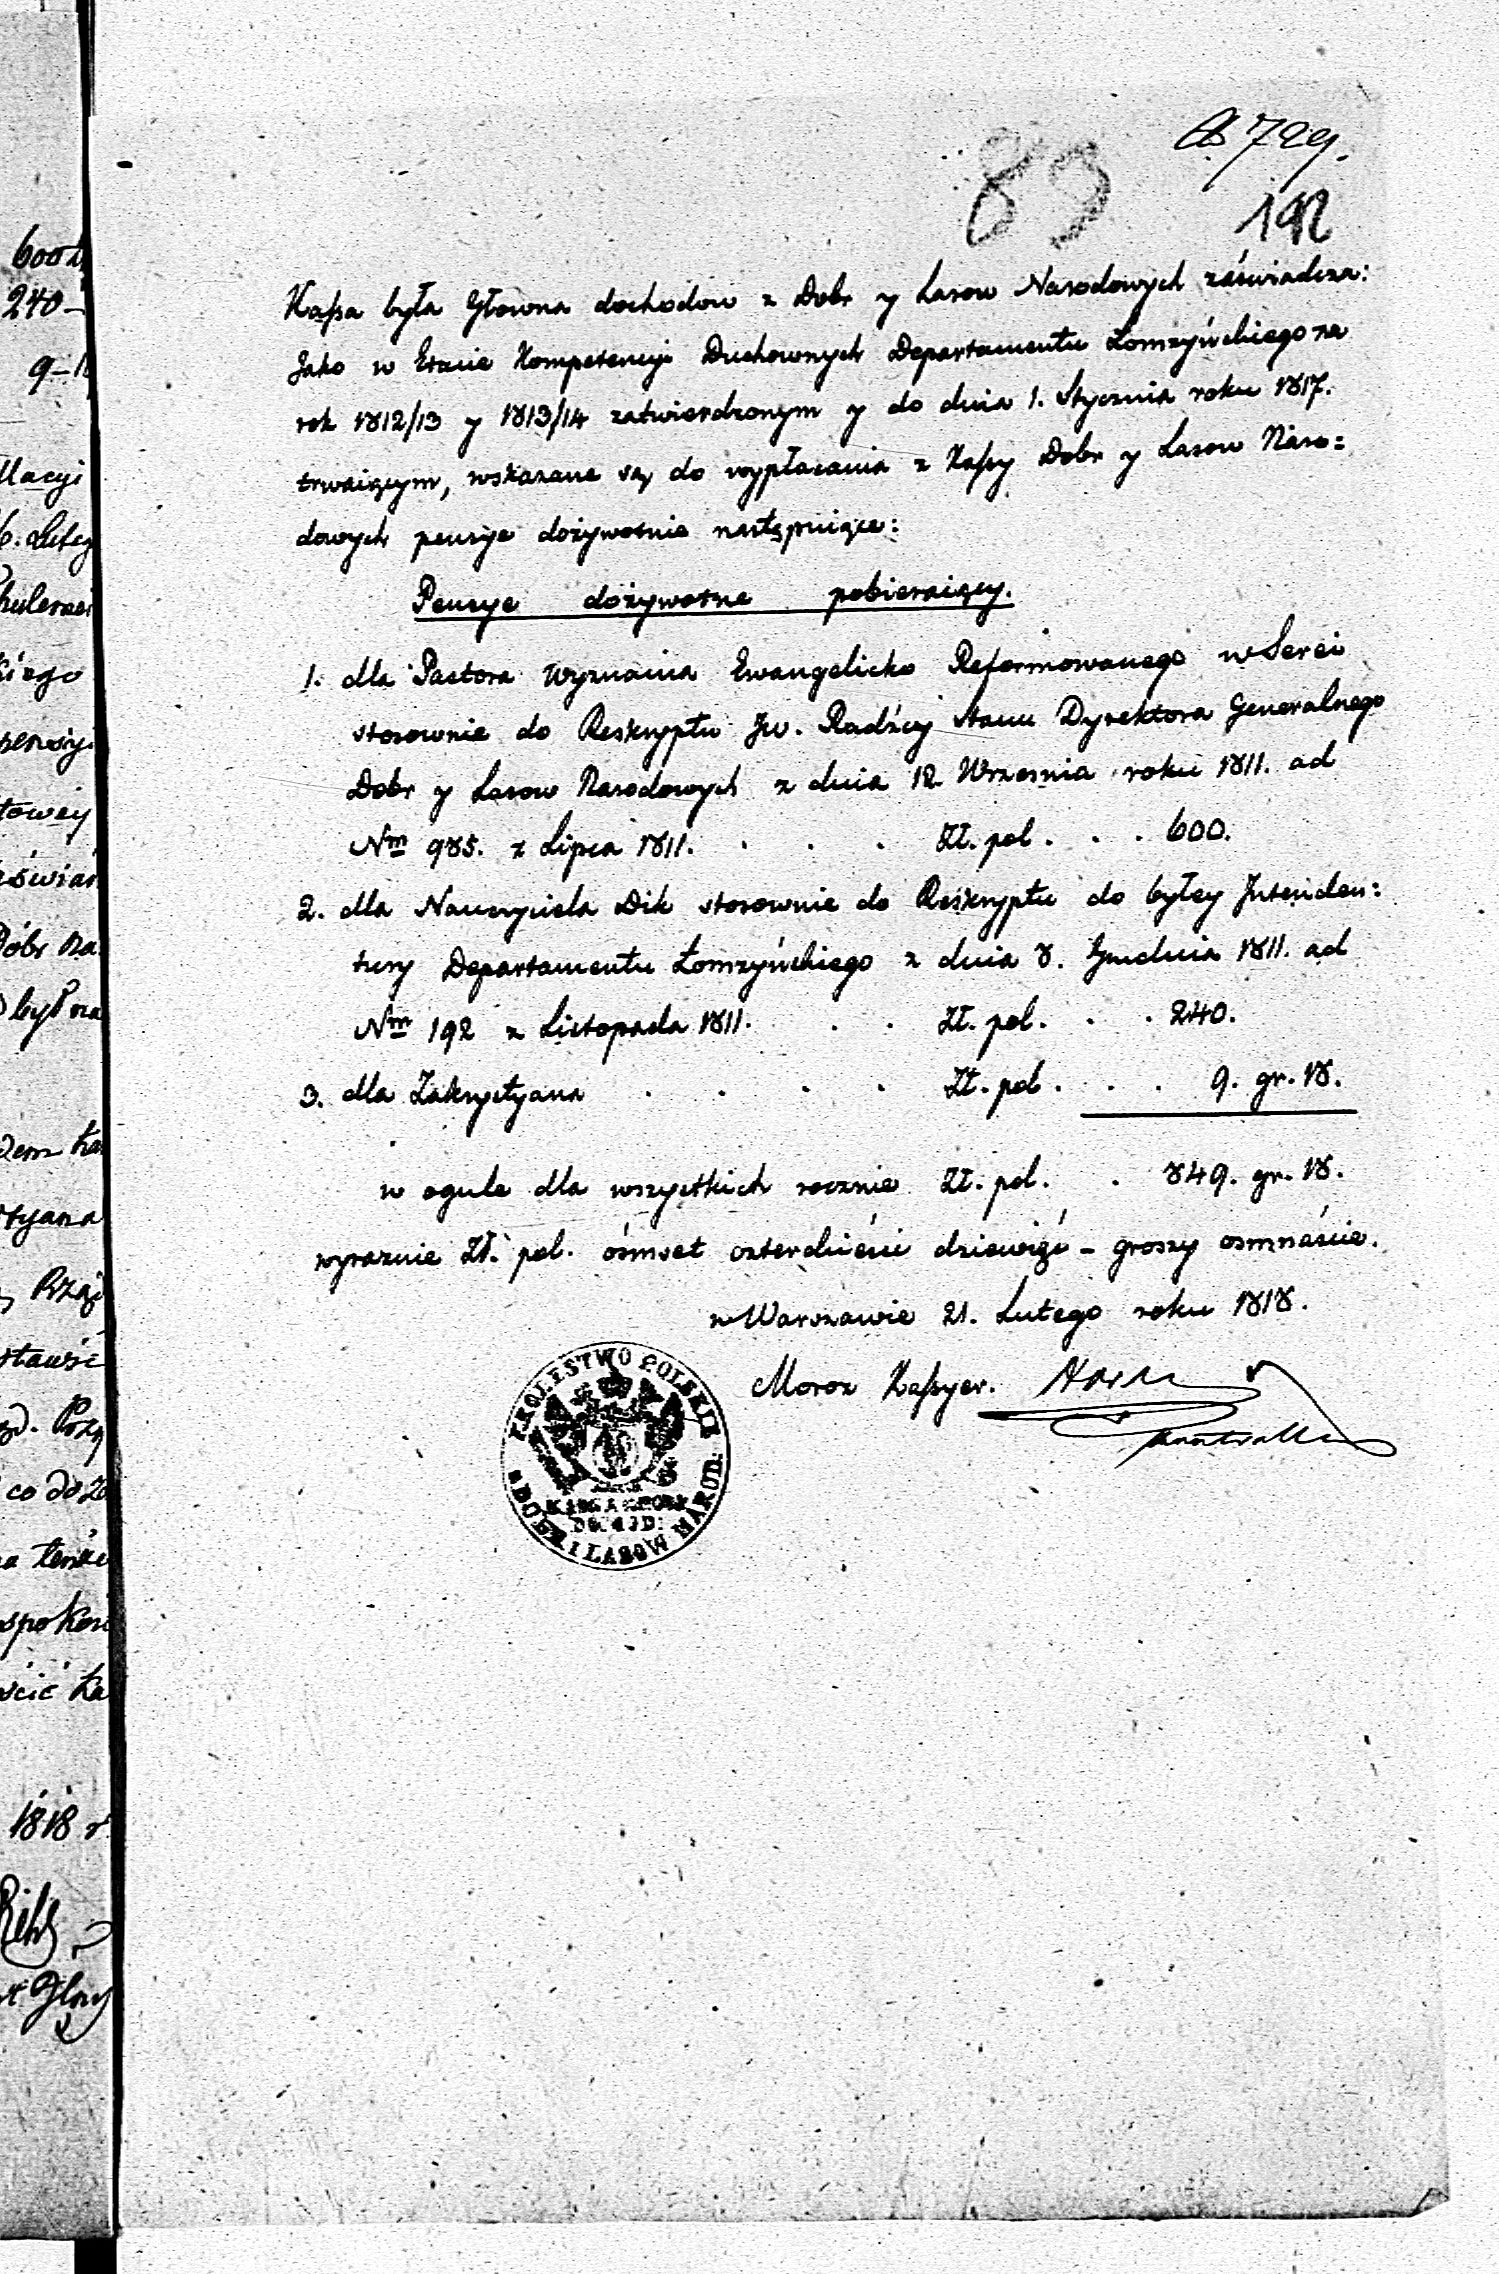 729.
89
192
Kaßa była Głowna dochodow z Dobr y Lasow Narodowych záświadcza:
Jako w Etacie Kompetencyi Duchownych Departamentu Łomzyńskiego na
rok 1812/13 y 1813/14 zatwierdzonym y do dnia 1. Stycznia roku 1817.
trwaiącym, wskazane są do wypłacania z Kaßy Dobr y Lasow Naro=
dowych pensye dożywotnie następuiące:
Pensye dożywotne pobieraiący.
1. dla Pastora Wyznania Ewangelicko Reformowanego w Serei
stosownie do Reskryptu Jw. Radźcy Stanu Dyrektora Generalnego
Dobr y Lasow Narodowych z dnia 12 Wrzesnia roku 1811. ad
Nm 985. z Lipca 1811. . . . Zł. pol . . . 600.
2. dla Nauczyciela Dik stosownie do Reskryptu do byłey Intenden:
tury Departamentu Łomzyńskiego z dnia 8. Grudnia 1811. ad
Nm 192 z Listopada 1811. . . Zł. pol. . . 240.
3. dla Zakrystyana . . . . Zł. pol . . . 9. gr. 18.
w ogule dla wszystkich rocznie Zł. pol. . 849. gr. 18.
wyraznie Zł. pol. ośmset czterdzieści dziewięć - groszy osmnaście.
w Warszawie 21. Lutego roku 1818.
Moroz Kaßyer.
KROLESTWO POLSKIE
DOBR I LASOW NAROD:
600
240 -
9 -
6. Luteg
kiego
towey
Dóbr na
był na
styana
co do
spokoi
1818 r